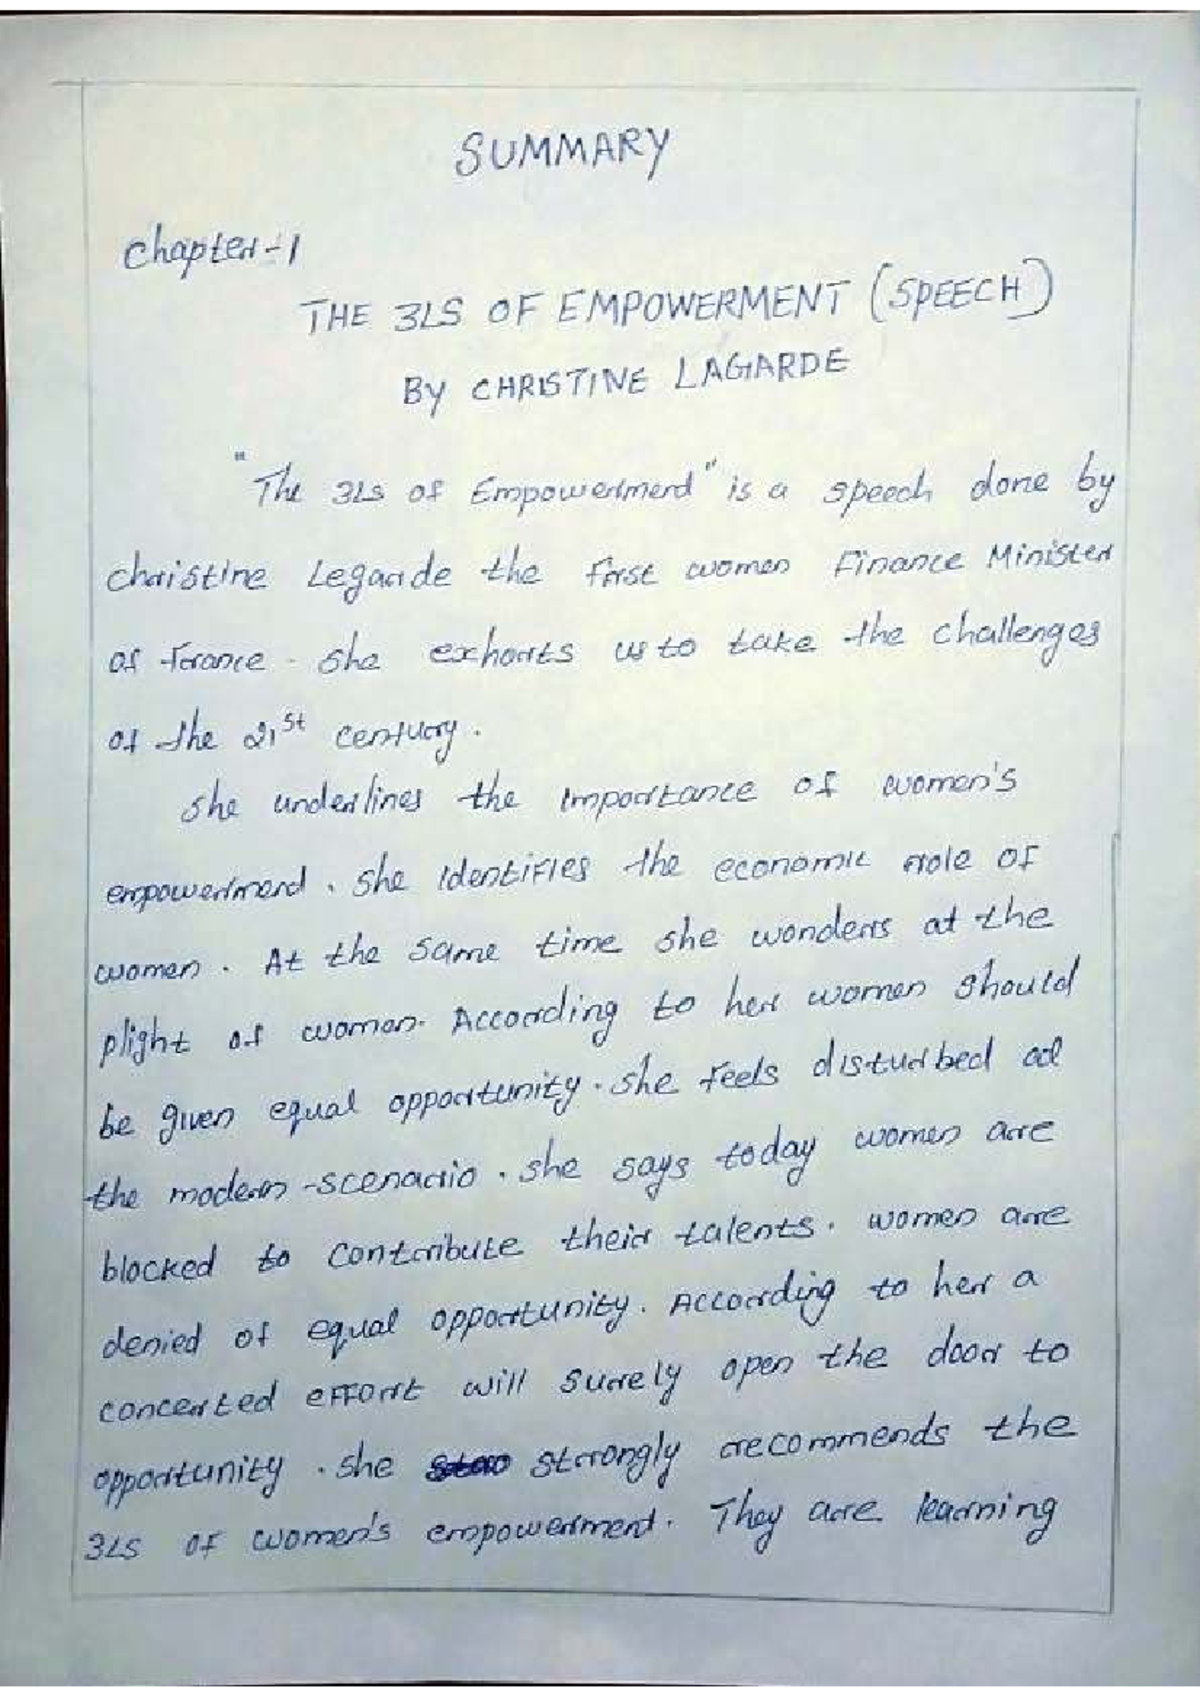 SUMMARY
Chapter-1
THE 3LS OF EMPOWERMENT (SPEECH)
BY CHRISTINE LAGARDE
"The 3Ls of Empowerment" is a speech done by
christine Legarde the first women Finance Minister
of France. She exhorts us to take the challenges
of the 21st century.
She underlines the importance of women's
empowerment. She identifies the economic role of
women. At the same time she wonders at the
plight of women. According to her women should
be given equal opportunity. She feels disturbed at
the modern-scenario. She says today women are
blocked to contribute their talents. women are
denied of equal opportunity. According to her a
concerted effort will surely open the door to
opportunity. She strongly recommends the
3Ls of women's empowerment. They are learning